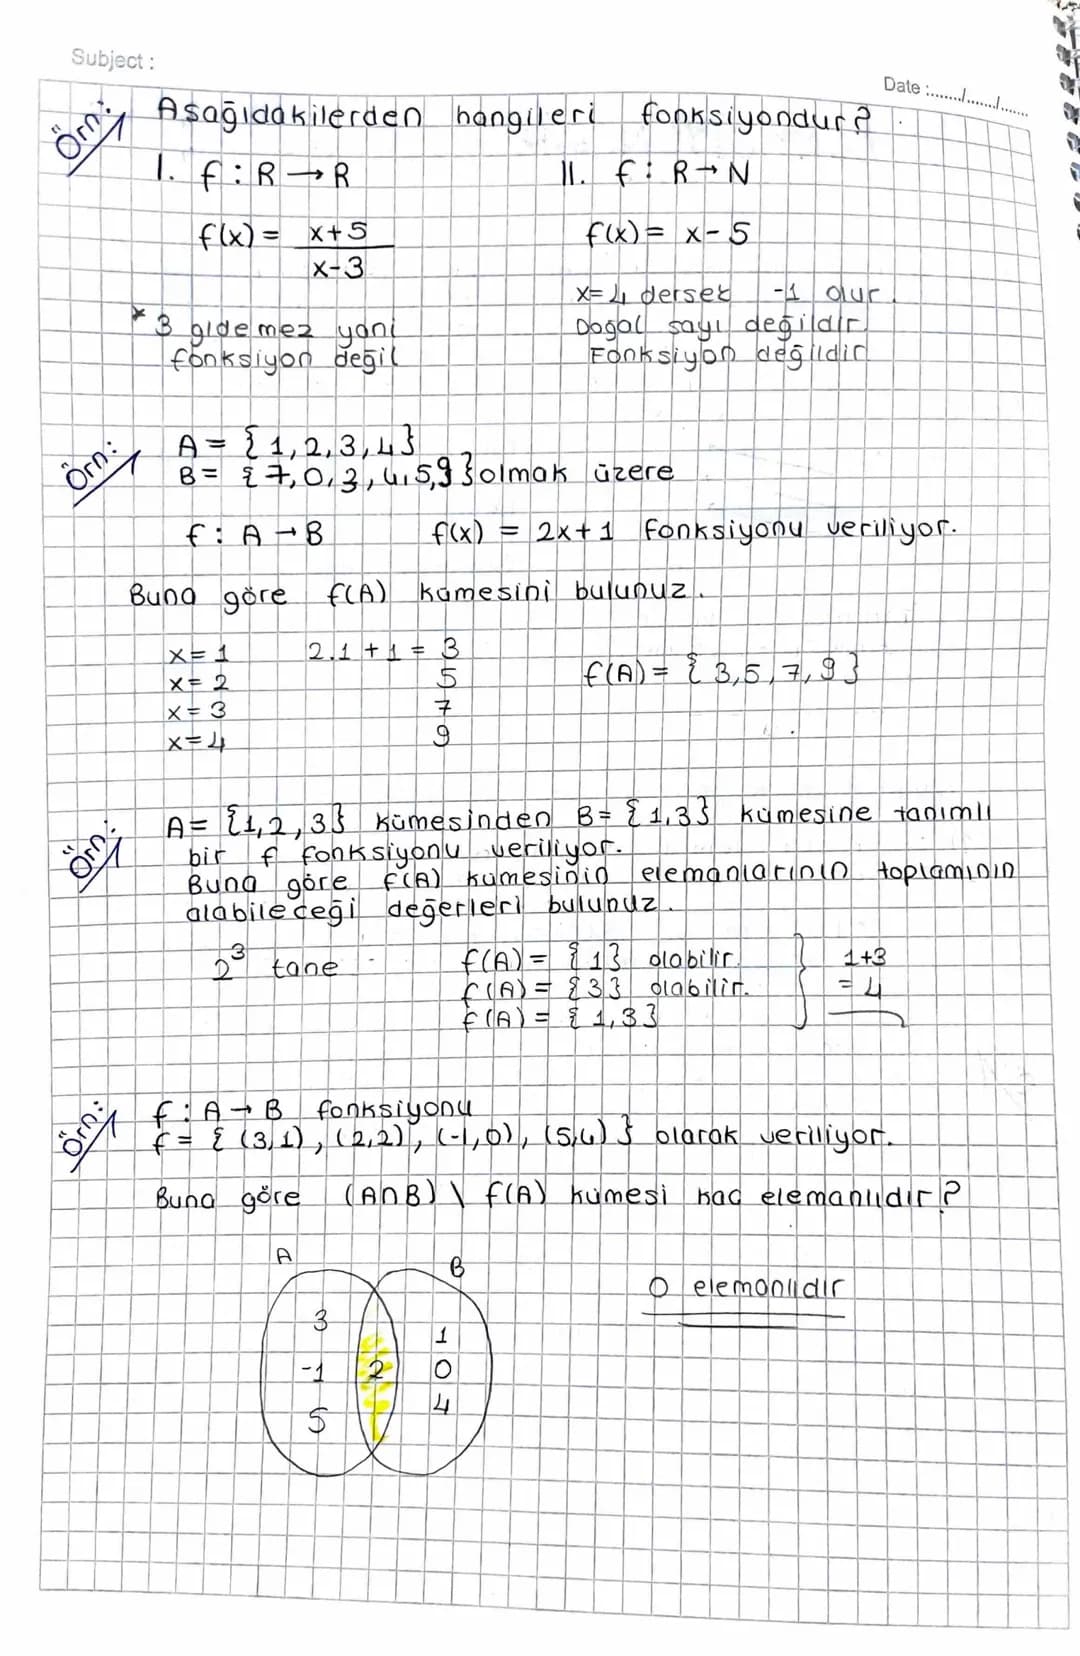 Subject :
Date :......./......./......
Örn: Aşağıdakilerden hangileri fonksiyondur?
I. f : R → R
II. f : R → N
f(x) = x+5 / x-3
f(x) = x - 5
x = 4 dersek -1 olur.
* 3 gidemez yani
Doğal sayı değildir.
fonksiyon değil
Fonksiyon değildir
Örn: A = {1,2,3,4}
B = {7,0,3,4,5,9} olmak üzere
f : A → B f(x) = 2x+1 fonksiyonu veriliyor.
Buna göre f(A) kümesini bulunuz.
x = 1 2.1 + 1 = 3
f(A) = {3,5,7,9}
x = 2 5
x = 3 7
x = 4 9
Örn: A = {1,2,3} kümesinden B = {1,3} kümesine tanımlı
bir f fonksiyonu veriliyor.
Buna göre f(A) kümesinin elemanlarının toplamının
alabileceği değerleri bulunuz.
2³ tane
f(A) = {1} olabilir.
f(A) = {3} olabilir.
f(A) = {1,3}
1+3
= 4
Örn: f : A → B fonksiyonu
f = { (3,1), (2,2), (-1,0), (5,4) } olarak veriliyor.
Buna göre (A∩B) \ f(A) kümesi kaç elemanlıdır?
A B
0 elemanlıdır
3 1
-1 2 0
5 4